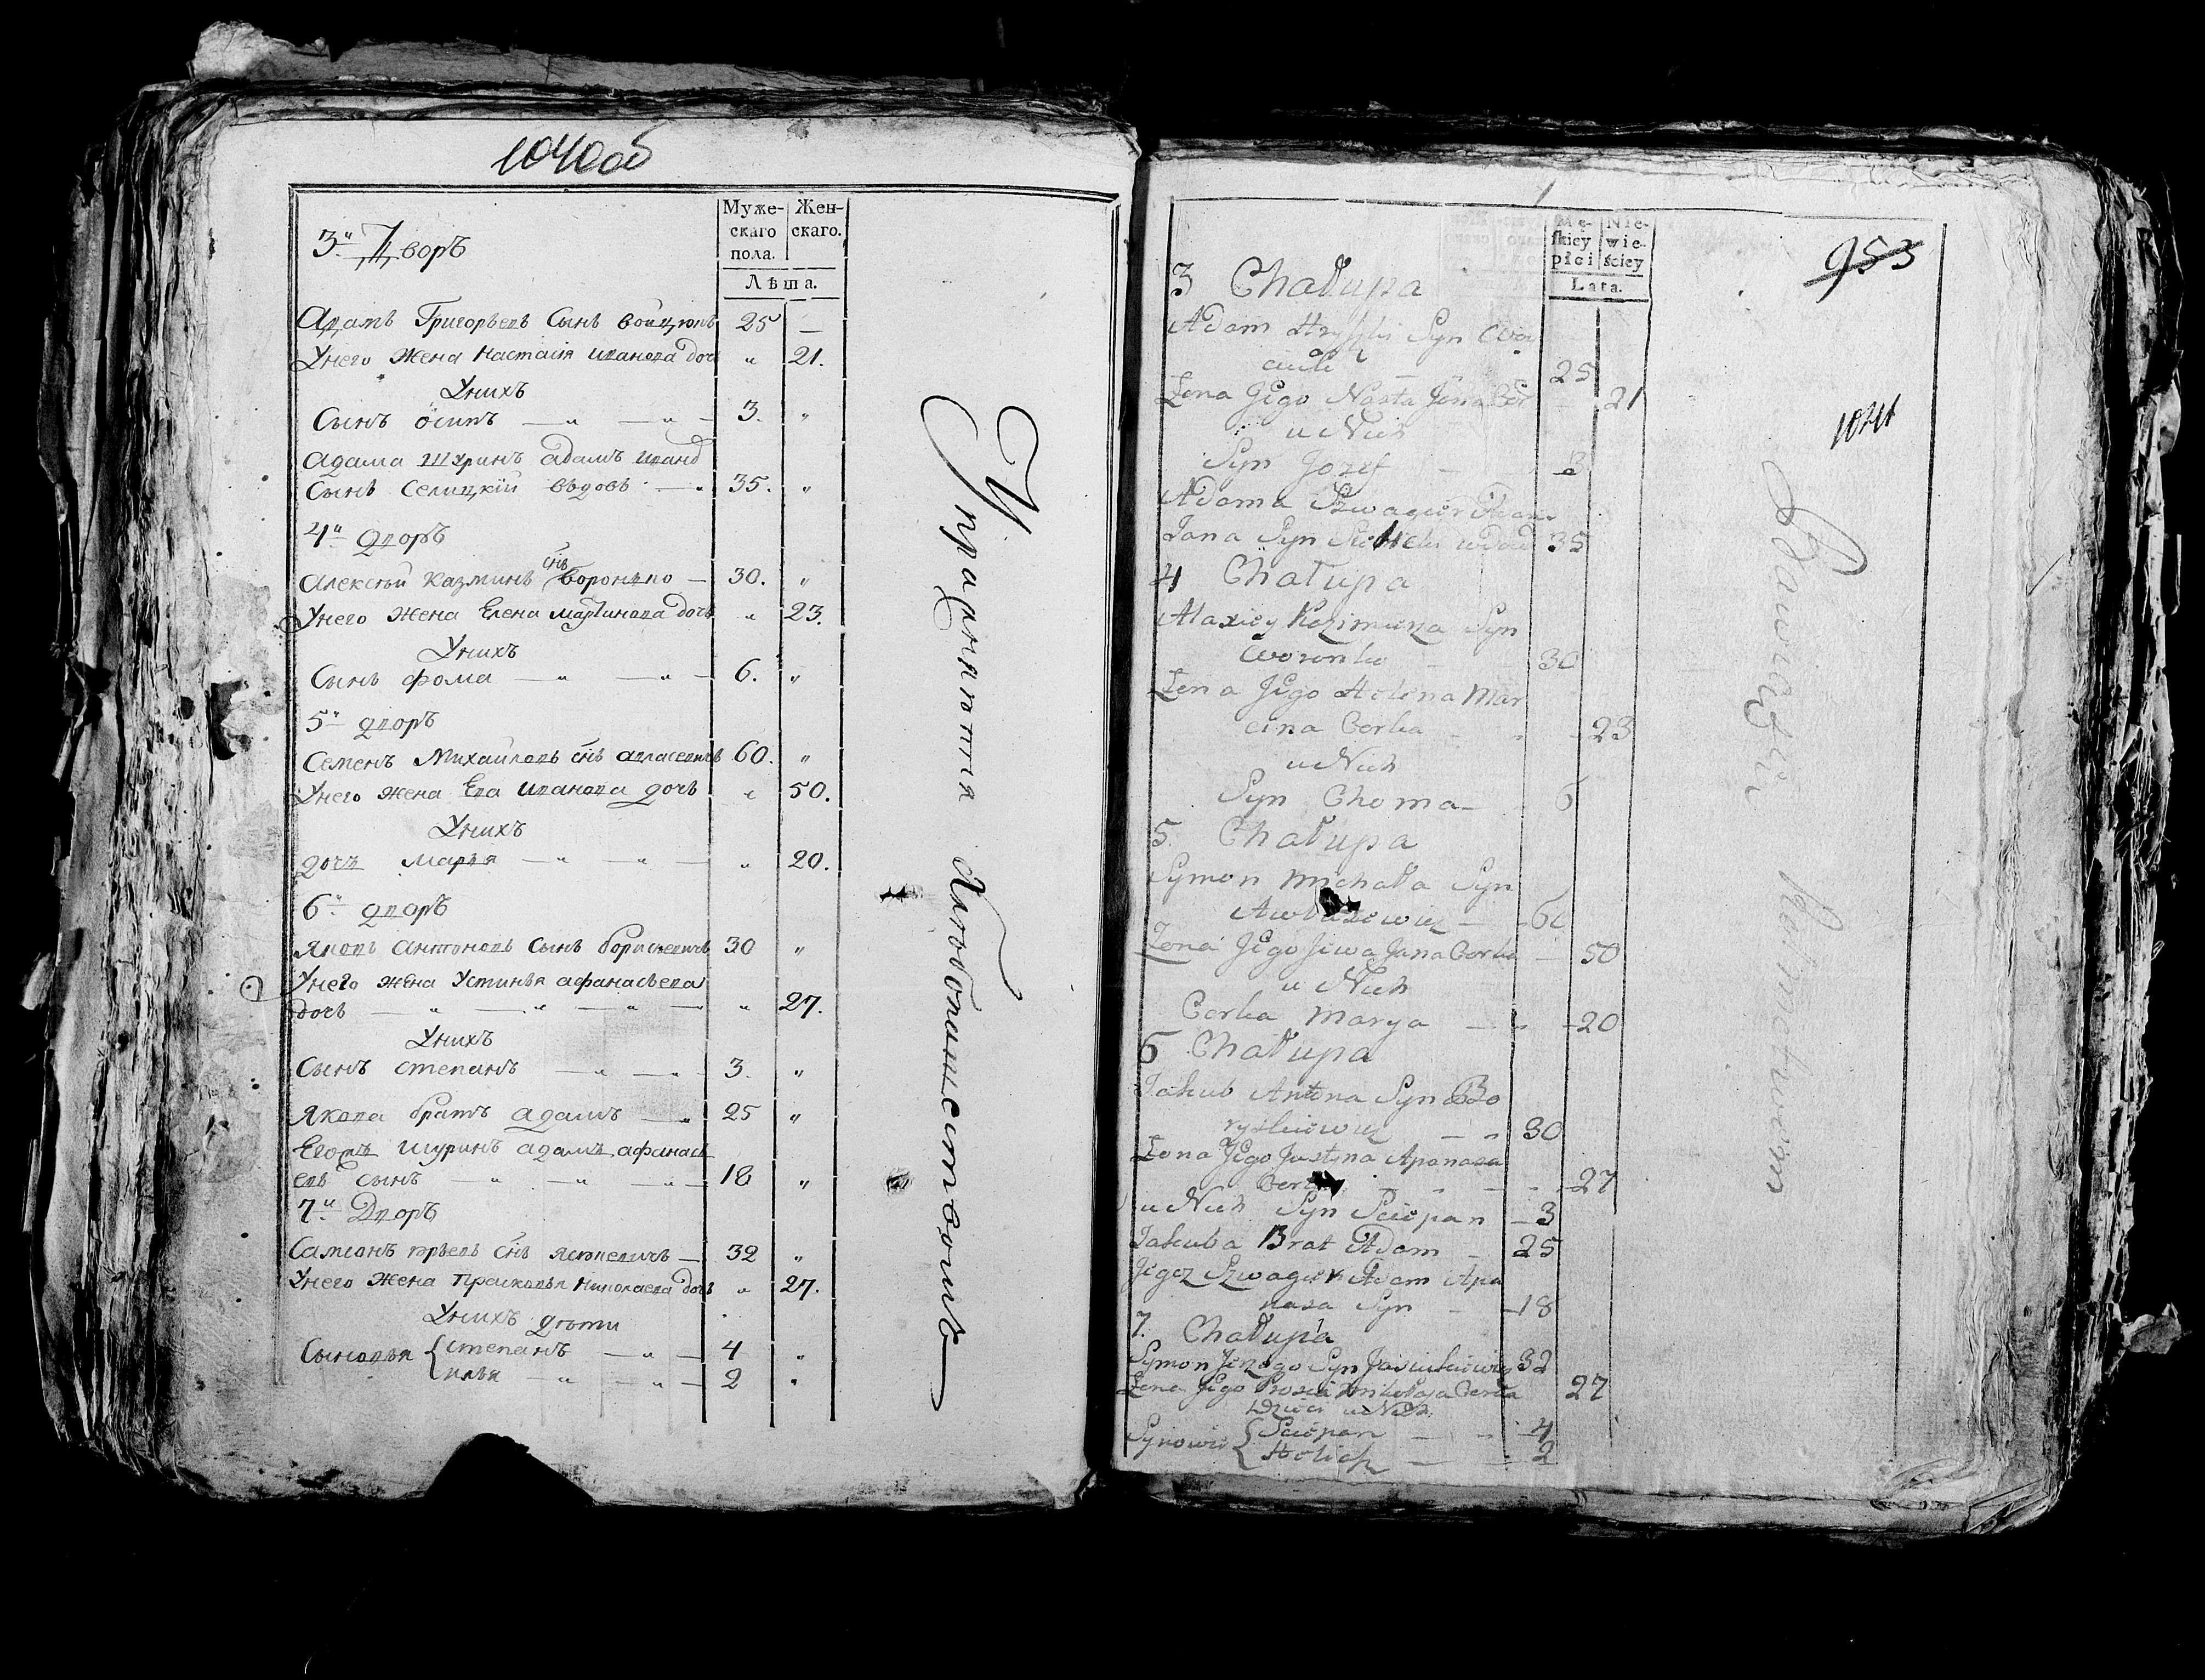 1040об
Муже-
скаго
пола.
Жен-
скаго.
Лѣта.
3й Дворъ
Адамъ Григорьевъ Сынъ войцюль 25 —
Унего Жена Настасія иванова дочь " 21.
Унихъ
Сынъ осипъ — " — " — 3. "
Адама Шуринъ адамъ иванъ
Сынъ Селицкій въдовъ — " 35. "
4й дворъ
Алексѣй Казминъ снъ воронько — 30. "
Унего жена Елена мартинова дочь " 23.
Унихъ
Сынъ фома — " — " — 6. "
5й дворъ
Семенъ Михайловъ снъ авласевичъ 60. "
Унего жена Ева иванова дочь " 50.
Унихъ
дочь марья — " — " — " 20.
6й дворъ
Яковъ антоновъ сынъ борискевичъ 30 "
Унего жена Устинья афанасьева
дочь — " — " — " — " 27.
Унихъ
Сынъ степанъ — " — " 3. "
Якова братъ адамъ — " 25 "
Еговъ шуринъ адамъ афанась
евъ сынъ — " — " — " — 18 "
7й Дворъ
Самсонъ юрьевъ снъ яс 32 "
Унего жена Прасковья николаева дочь " 27.
Унихъ дѣти
Сыновья { степанъ — " — 4 "
илья — " — " — 2 "
Управляющія Любопытствомъ
Mę-
skiey
płci
Nie-
wie-
ściey
Lata.
953
1041
3 Chałupa
Adam Hryszki Syn Woy
ciul — " 25
Żona Jego Nasta Jana Cor — 21
u Nich
Syn Jozef — 3
Adama Szwagier Adam
Jana Syn Sielicki wdow 35
4 Chałupa
Alaxiey Kazimierza Syn
Woronko — 30
Żona Jego Helena Mar
cina Corka — " — 23
u Nich
Syn Choma — 6
5 Chałupa
Symon Michała Syn
Awłasewicz — 60
Żona Jego Jewa Jana Corka — 50
u Nich
Corka Marya — " — 20
6 Chałupa
Jakub Antona Syn Bo
ryskiewicz — " 30
Żona Jego Justina Apanasa
Corka — " — 27
u Nich Syn Sciepan — 3
Jakuba Brat Adam — 25
Jegoż Szwagier Adam Apa
nasa Syn — 18
7. Chałupa
Symon Jerzego Syn 32
Żona Jego Mikołaja Corka 27
Dzieci u Nich
Synowie { Sciepan — " — 4
Helias — — 2